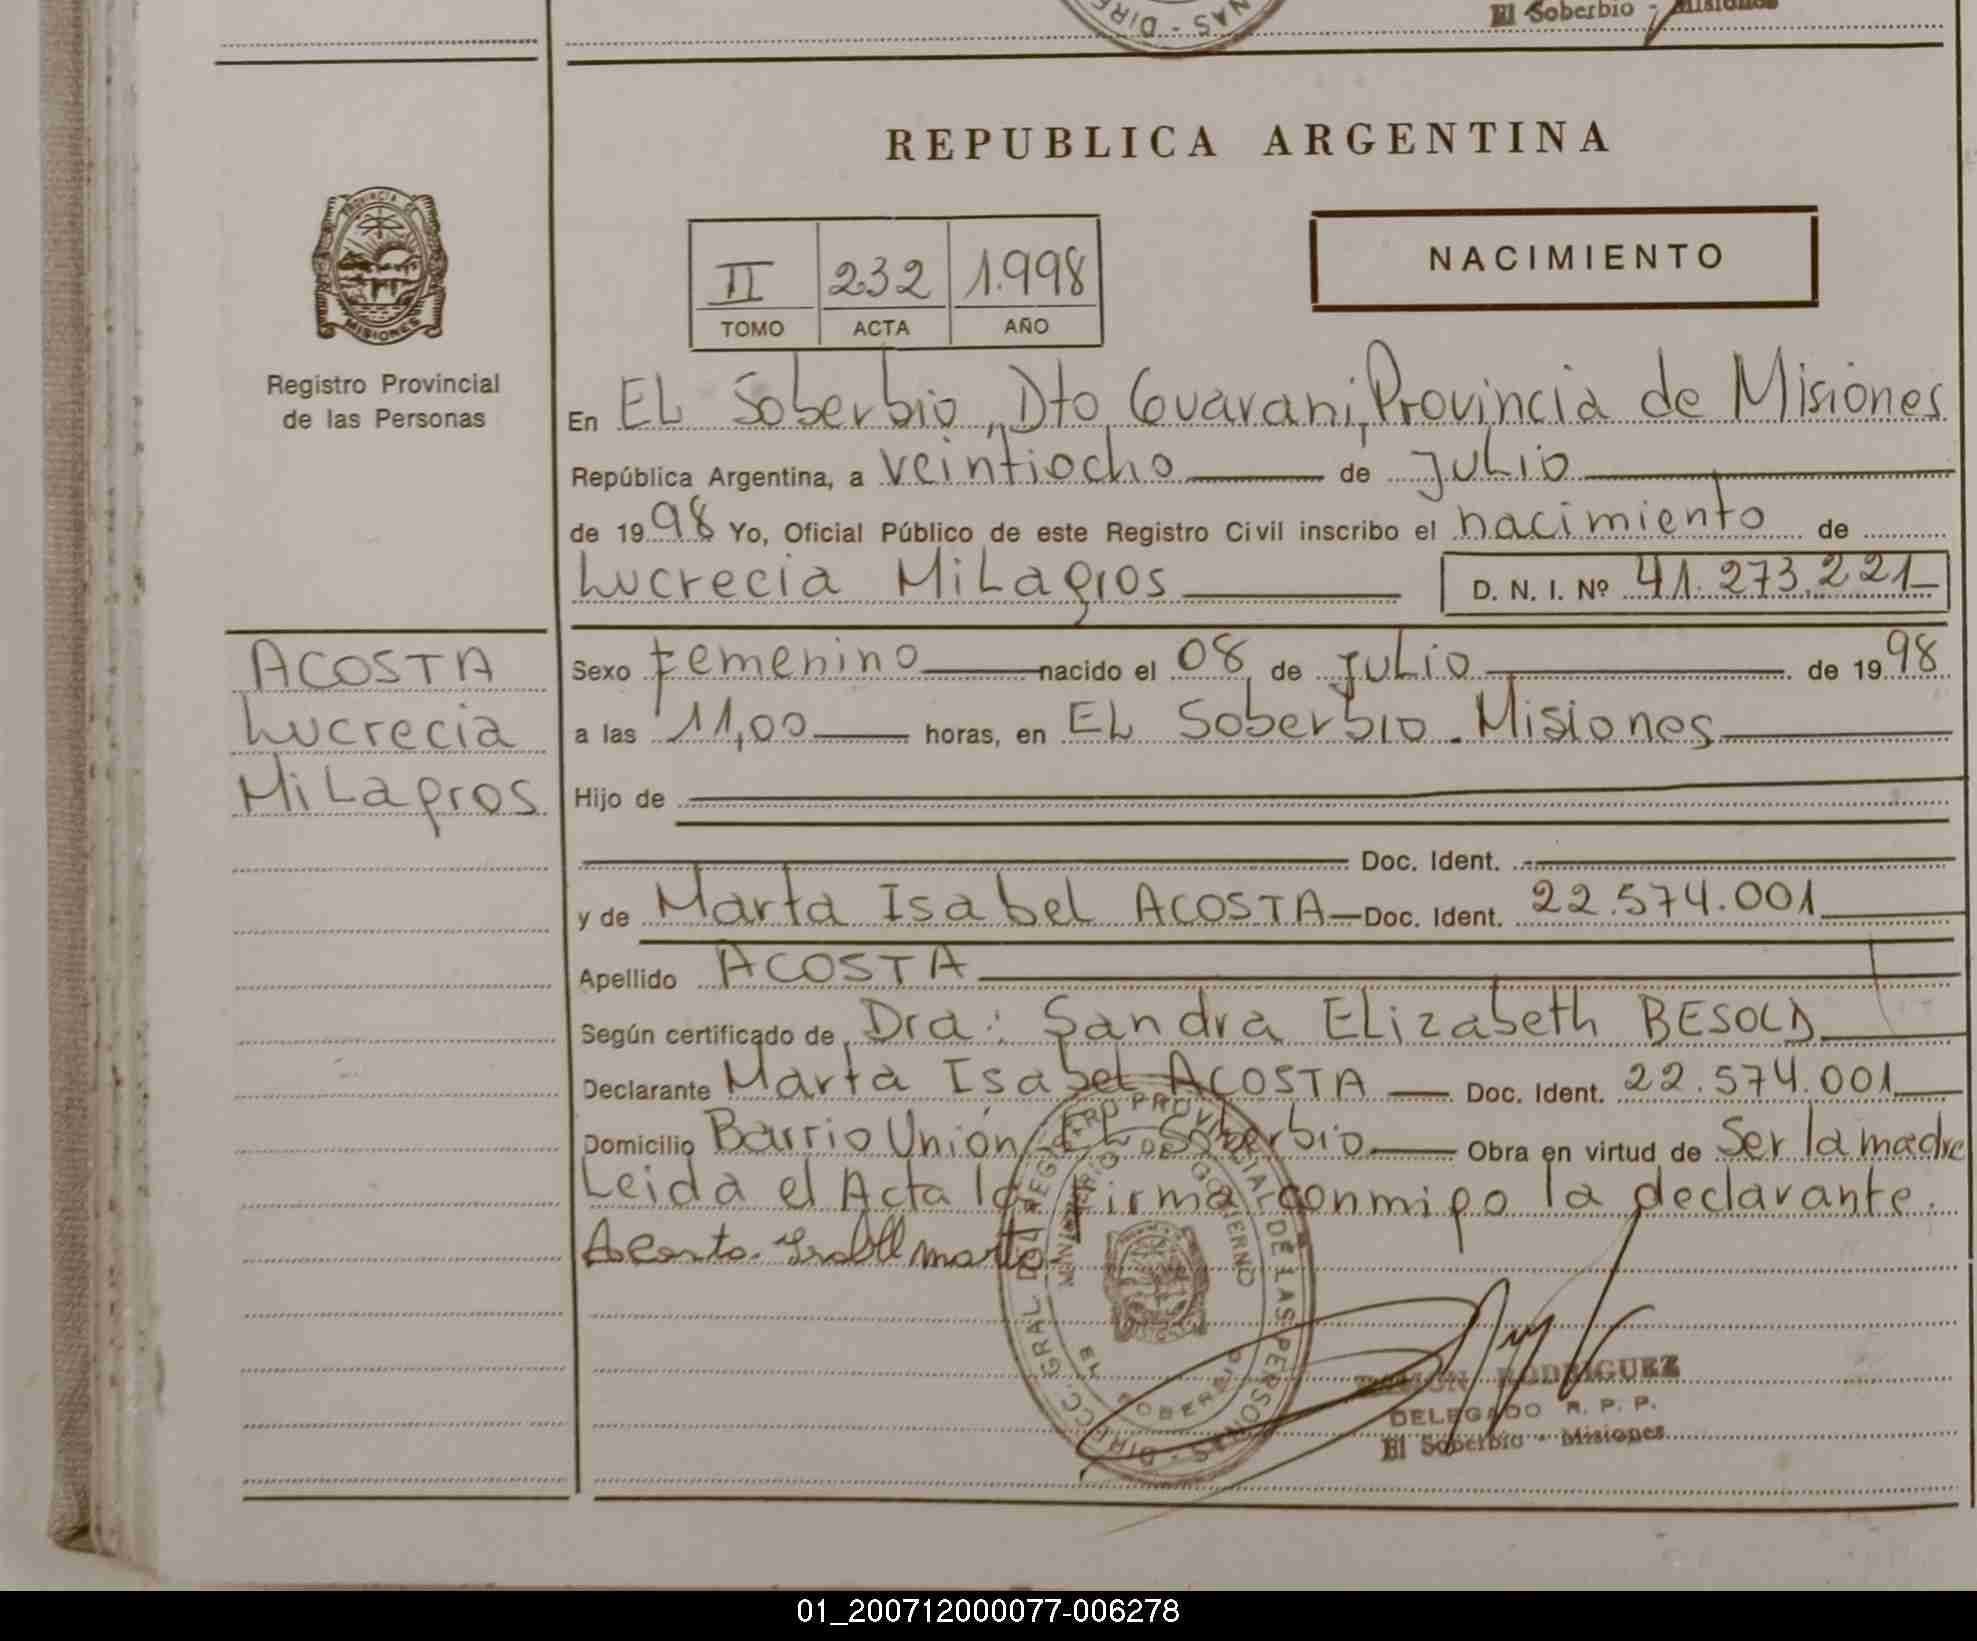 El Soberbio - Misiones
REPUBLICA ARGENTINA
PROVINCIA DE
MISIONES
Registro Provincial
de las Personas
II 232 1.998
TOMO ACTA AÑO
NACIMIENTO
En EL Soberbio, Dto Guarani, Provincia de Misiones
República Argentina, a veintiocho de julio
de 1998 Yo, Oficial Público de este Registro Civil inscribo el nacimiento de
Lucrecia Milagros D. N. I. Nº 41.273.221
ACOSTA
Lucrecia
Milagros
Sexo femenino nacido el 08 de julio de 1998
a las 11,00 horas, en EL Soberbio - Misiones
Hijo de
Doc. Ident.
y de Marta Isabel ACOSTA Doc. Ident. 22.574.001
Apellido ACOSTA
Según certificado de Dra: Sandra Elizabeth BESOLD
Declarante Marta Isabel ACOSTA Doc. Ident. 22.574.001
Domicilio Barrio Unión EL Soberbio Obra en virtud de Ser la madre
Leida el Acta la firma conmigo la declarante.
Acosta Isabel marta
DIRECC. GRAL DEL REGISTRO PROVINCIAL DE LAS PERSONAS
MINISTERIO DE GOBIERNO
EL SOBERBIO
RAMON RODRIGUEZ
DELEGADO R. P. P.
El Soberbio - Misiones
01_200712000077-006278